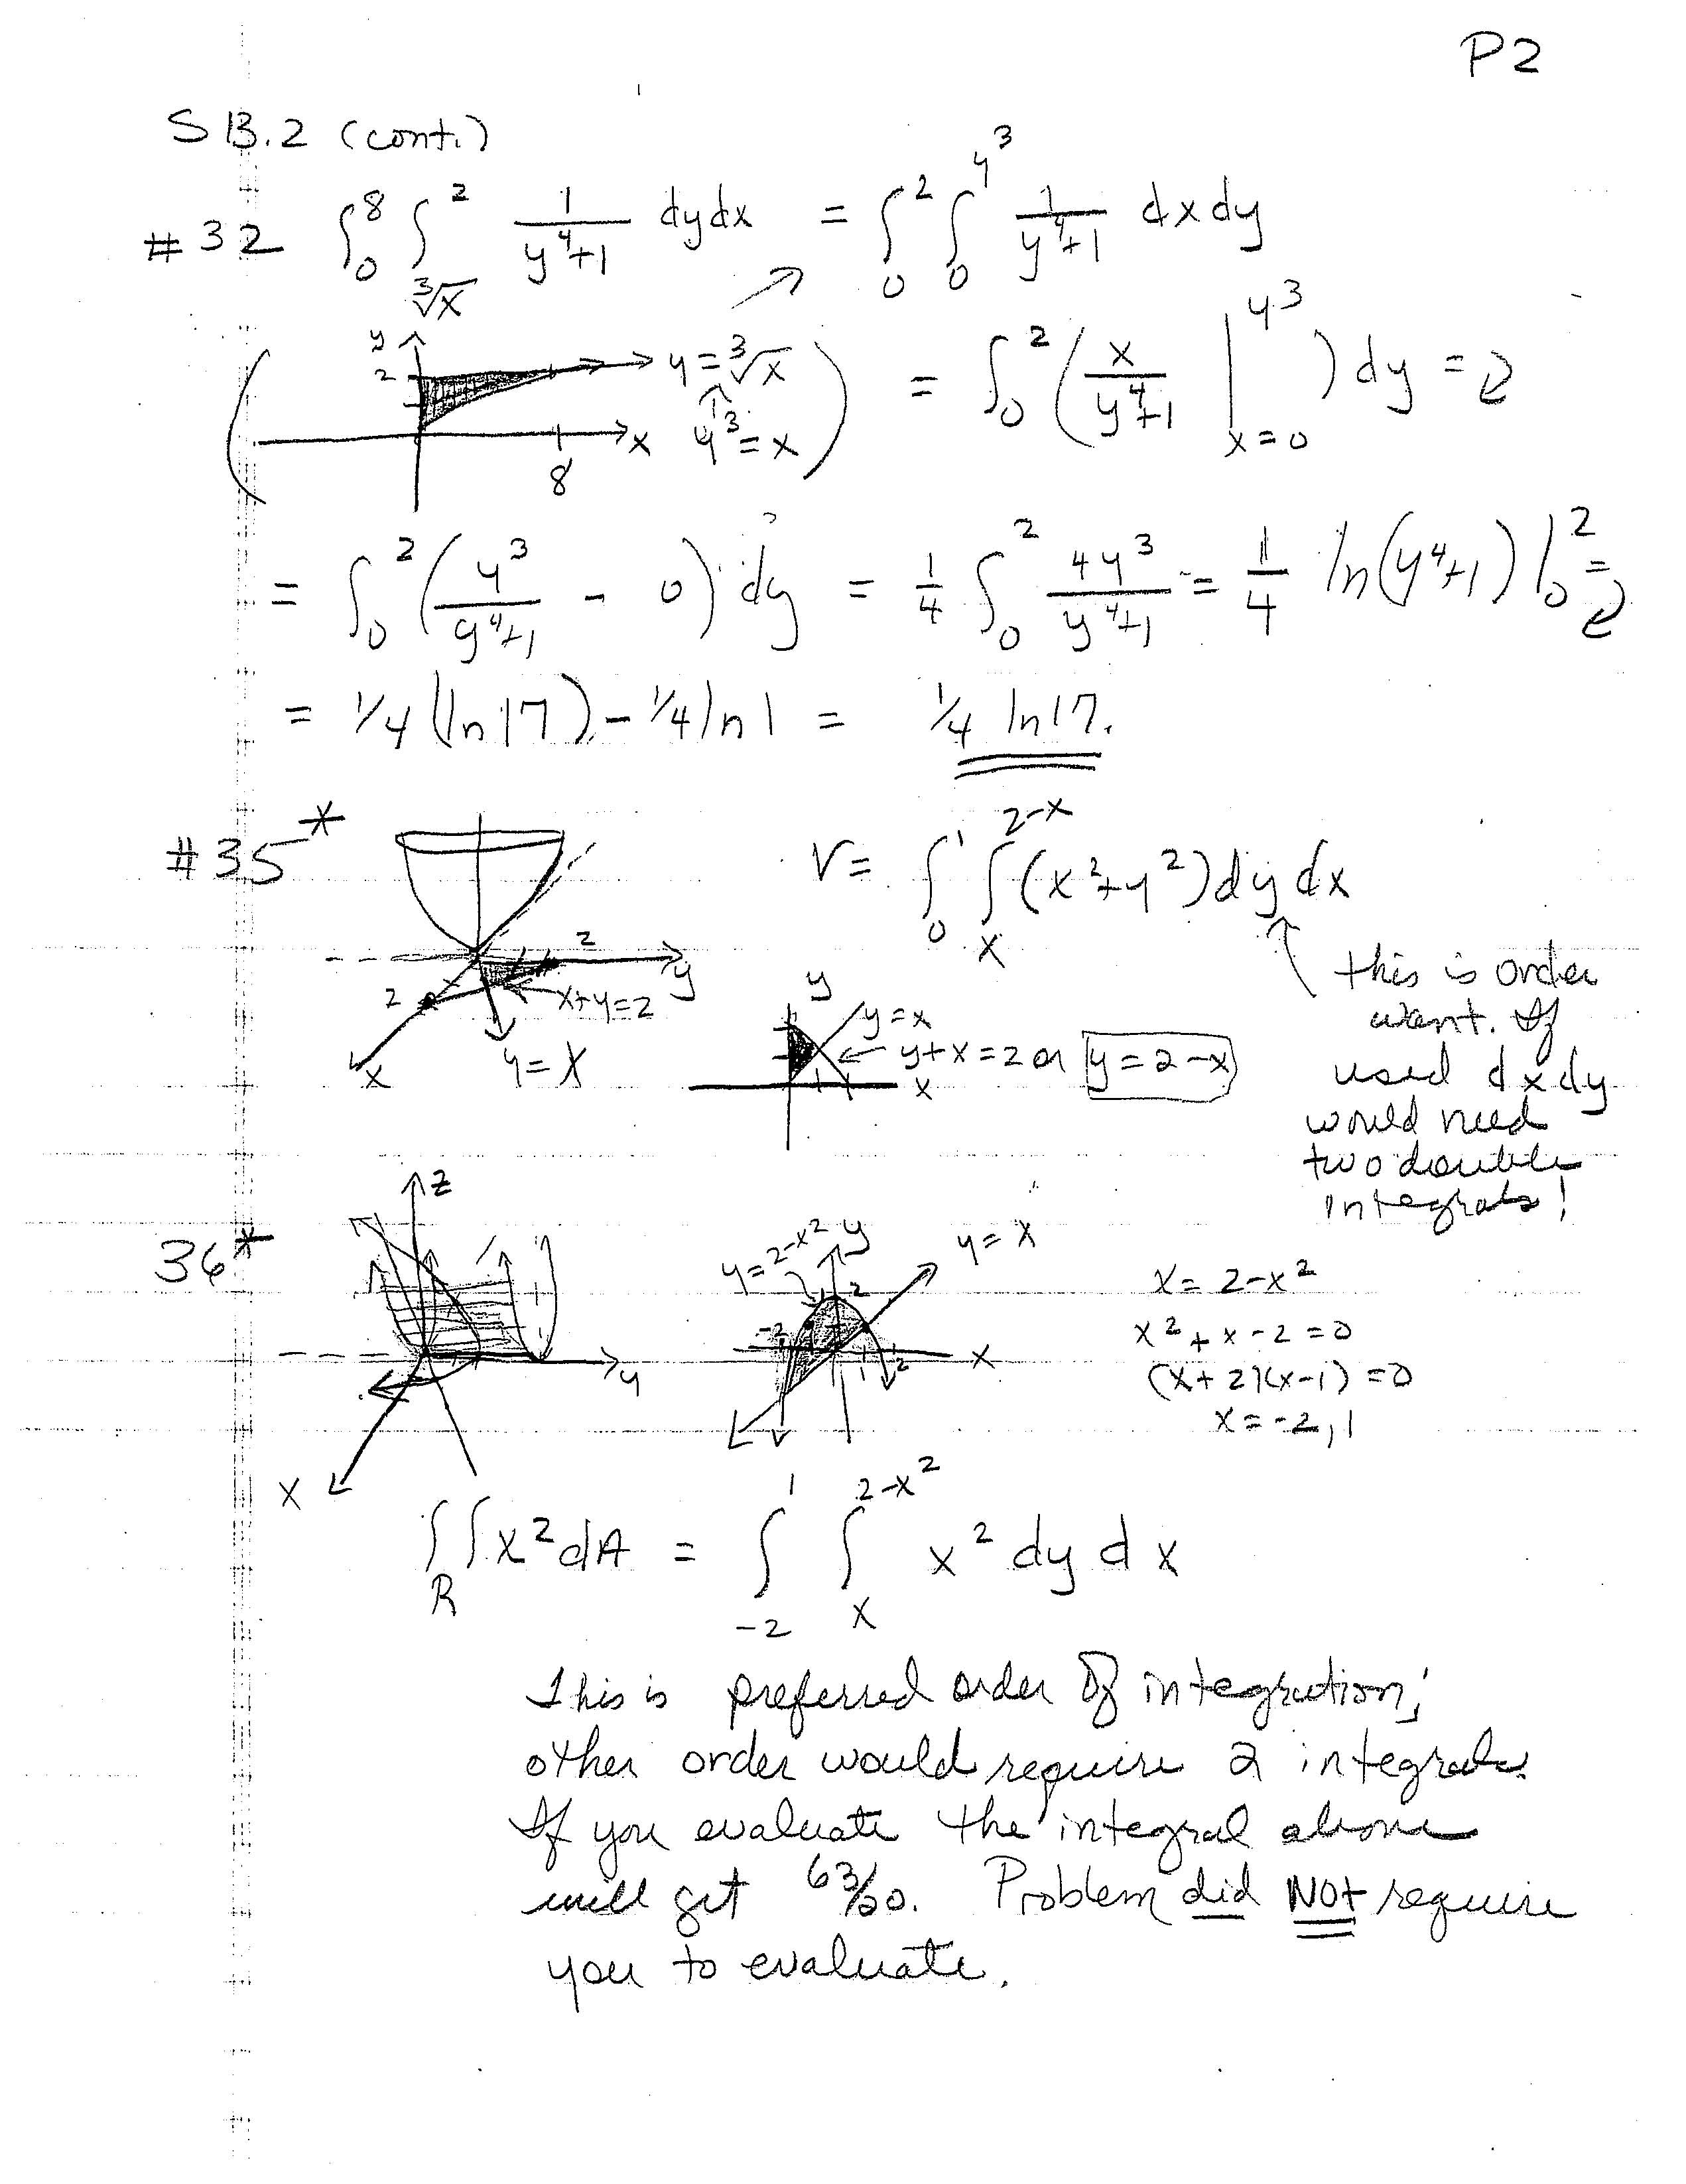 P2
S 13.2 (cont.)
#32 ∫₀⁸ ∫_{∛x}² 1/(y⁴+1) dydx = ∫₀² ∫₀^{y³} 1/(y⁴+1) dxdy
( y 2 8 x y = ∛x y³ = x ) = ∫₀² ( x/(y⁴+1) |_{x=0}^{y³} ) dy =
= ∫₀² ( y³/(y⁴+1) - 0 ) dy = 1/4 ∫₀² 4y³/(y⁴+1) = 1/4 ln(y⁴+1) |₀² =
= 1/4 (ln 17) - 1/4 ln 1 = 1/4 ln 17.
#35* V = ∫₀¹ ∫_x^{2-x} (x²+y²) dy dx
2 y 2 x+y=2 x y=x
y y=x y+x=2 or y=2-x x
this is order
want. If
used dxdy
would need
two double
integrals!
36* z y x
y=2-x² y y=x -2 2 2 x
x = 2-x²
x² + x - 2 = 0
(x+2)(x-1) = 0
x = -2, 1
∫∫_R x² dA = ∫_{-2}^1 ∫_x^{2-x²} x² dy dx
This is preferred order of integration;
other order would require 2 integrals.
If you evaluate the integral above
will get 63/20. Problem did NOT require
you to evaluate.